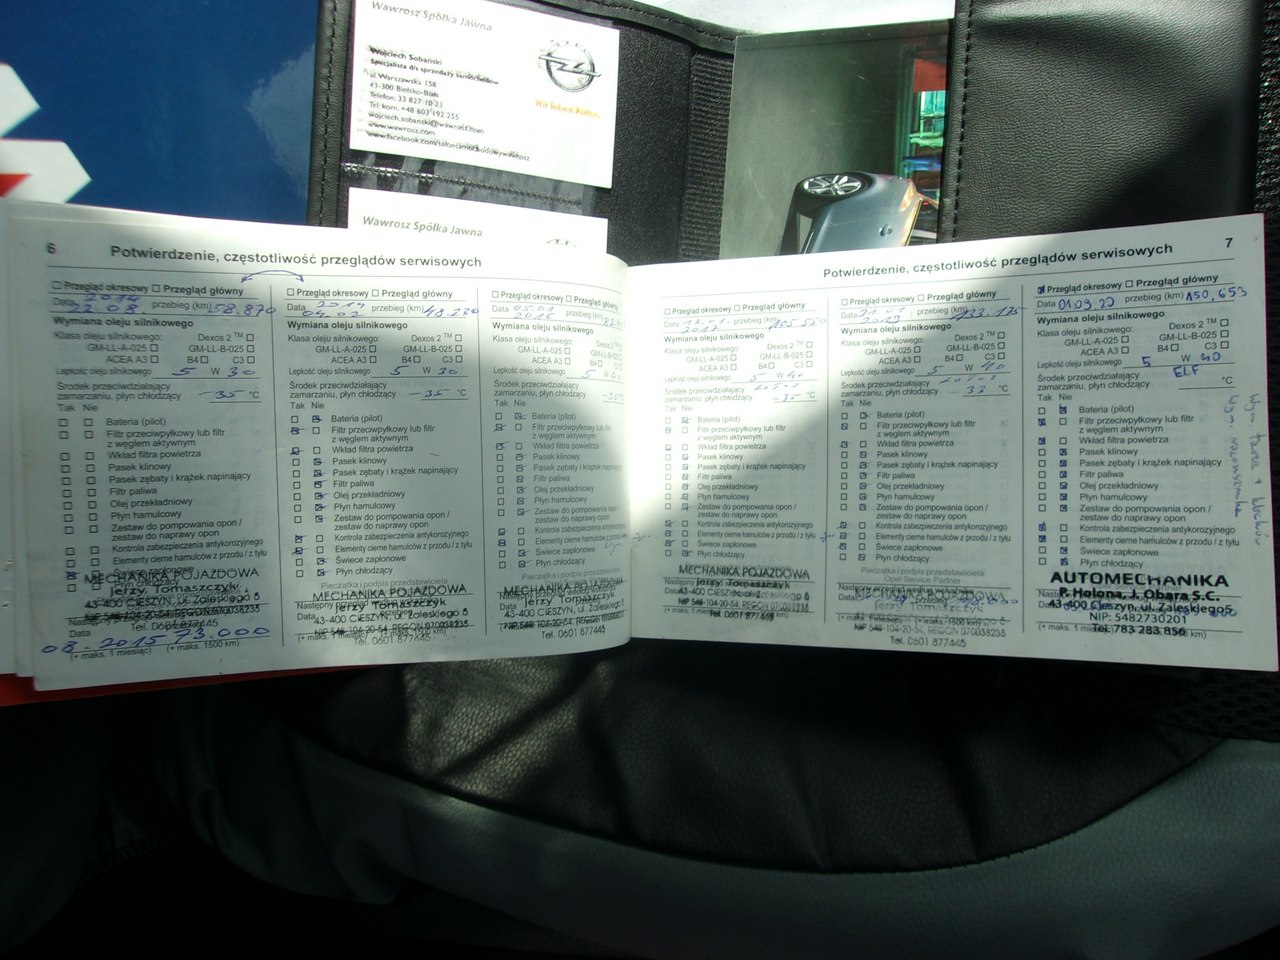 Wawrosz Spółka Jawna
Wojciech Sobański
Specjalista d/s sprzedaży samochodów
ul. Warszawska 158
43-300 Bielsko-Biała
Telefon: 33 827 10 23
Tel. kom. +48 603 192 255
wojciech.sobanski@wawrosz.com
www.wawrosz.com
www.facebook.com/salonsamochodowywawrosz
Wir leben Autos.
Wawrosz Spółka Jawna
6
Potwierdzenie, częstotliwość przeglądów serwisowych
Przegląd okresowy Przegląd główny
2014
Data 22 08. przebieg (km) 58.870
Wymiana oleju silnikowego
Klasa oleju silnikowego: Dexos 2 TM
GM-LL-A-025 GM-LL-B-025
ACEA A3 B4 C3
Lepkość oleju silnikowego 5 W 30
Środek przeciwdziałający
zamarzaniu, płyn chłodzący -35 °C
Tak Nie
Bateria (pilot)
Filtr przeciwpyłkowy lub filtr
z węglem aktywnym
Wkład filtra powietrza
Pasek klinowy
Pasek zębaty i krążek napinający
Filtr paliwa
Olej przekładniowy
Płyn hamulcowy
Zestaw do pompowania opon /
zestaw do naprawy opon
Kontrola zabezpieczenia antykorozyjnego
Elementy cierne hamulców z przodu / z tyłu
Świece zapłonowe
Płyn chłodzący
MECHANIKA POJAZDOWA
Jerzy Tomaszczyk
43-400 CIESZYN, ul. Zaleskiego 5
Tel. 0601 877445
Data
08. 2015 73.000
(+ maks. 1 miesiąc) (+ maks. 1500 km)
Przegląd okresowy Przegląd główny
2014
Data 04.02 przebieg (km) 48.230
Wymiana oleju silnikowego
Klasa oleju silnikowego: Dexos 2 TM
GM-LL-A-025 GM-LL-B-025
ACEA A3 B4 C3
Lepkość oleju silnikowego 5 W 30
Środek przeciwdziałający
zamarzaniu, płyn chłodzący -35 °C
Tak Nie
Bateria (pilot)
Filtr przeciwpyłkowy lub filtr
z węglem aktywnym
Wkład filtra powietrza
Pasek klinowy
Pasek zębaty i krążek napinający
Filtr paliwa
Olej przekładniowy
Płyn hamulcowy
Zestaw do pompowania opon /
zestaw do naprawy opon
Kontrola zabezpieczenia antykorozyjnego
Elementy cierne hamulców z przodu / z tyłu
Świece zapłonowe
Płyn chłodzący
Pieczątka i podpis przedstawiciela
MECHANIKA POJAZDOWA
Jerzy Tomaszczyk
43-400 CIESZYN, ul. Zaleskiego 5
NIP 548-104-20-54, REGON 070038235
Tel. 0601 877445
Przegląd okresowy Przegląd główny
Data
Wymiana oleju silnikowego
Klasa oleju silnikowego: Dexos 2
GM-LL-A-025 GM-LL-B-025
ACEA A3 B4
Lepkość oleju silnikowego 5 W
Środek przeciwdziałający
zamarzaniu, płyn chłodzący
Tak Nie
Bateria (pilot)
Filtr przeciwpyłkowy lub filtr
z węglem aktywnym
Wkład filtra powietrza
Pasek klinowy
Pasek zębaty i krążek napinający
Filtr paliwa
Olej przekładniowy
Płyn hamulcowy
Zestaw do pompowania opon /
zestaw do naprawy opon
Kontrola zabezpieczenia antykorozyjnego
Elementy cierne hamulców z przodu / z tyłu
Świece zapłonowe
Płyn chłodzący
Pieczątka i podpis przedstawiciela
MECHANIKA POJAZDOWA
Jerzy Tomaszczyk
43-400 CIESZYN, ul. Zaleskiego 5
Tel. 0601 877445
7
Potwierdzenie, częstotliwość przeglądów serwisowych
Przegląd okresowy Przegląd główny
Data 2017 przebieg (km) 105 550
Wymiana oleju silnikowego
Klasa oleju silnikowego: Dexos 2 TM
GM-LL-A-025 GM-LL-B-025
ACEA A3 B4 C3
Lepkość oleju silnikowego 5 W 40
Środek przeciwdziałający
zamarzaniu, płyn chłodzący -35 °C
Tak Nie
Bateria (pilot)
Filtr przeciwpyłkowy lub filtr
z węglem aktywnym
Wkład filtra powietrza
Pasek klinowy
Pasek zębaty i krążek napinający
Filtr paliwa
Olej przekładniowy
Płyn hamulcowy
Zestaw do pompowania opon /
zestaw do naprawy opon
Kontrola zabezpieczenia antykorozyjnego
Elementy cierne hamulców z przodu / z tyłu
Świece zapłonowe
Płyn chłodzący
MECHANIKA POJAZDOWA
Jerzy Tomaszczyk
43-400 CIESZYN, ul. Zaleskiego 5
NIP 548-104-20-54, REGON 070038235
Tel. 0601 877445
Przegląd okresowy Przegląd główny
Data przebieg (km) 133.175
Wymiana oleju silnikowego
Klasa oleju silnikowego: Dexos 2 TM
GM-LL-A-025 GM-LL-B-025
ACEA A3 B4 C3
Lepkość oleju silnikowego 5 W 40
Środek przeciwdziałający
zamarzaniu, płyn chłodzący °C
Tak Nie
Bateria (pilot)
Filtr przeciwpyłkowy lub filtr
z węglem aktywnym
Wkład filtra powietrza
Pasek klinowy
Pasek zębaty i krążek napinający
Filtr paliwa
Olej przekładniowy
Płyn hamulcowy
Zestaw do pompowania opon /
zestaw do naprawy opon
Kontrola zabezpieczenia antykorozyjnego
Elementy cierne hamulców z przodu / z tyłu
Świece zapłonowe
Płyn chłodzący
Pieczątka i podpis przedstawiciela
Opel Service Partner
MECHANIKA POJAZDOWA
Jerzy Tomaszczyk
43-400 CIESZYN, ul. Zaleskiego 5
NIP 548-104-20-54, REGON 070038235
Tel. 0601 877445
Przegląd okresowy Przegląd główny
Data 01.09.20 przebieg (km) 150,653
Wymiana oleju silnikowego
Klasa oleju silnikowego: Dexos 2 TM
GM-LL-A-025 GM-LL-B-025
ACEA A3 B4 C3
Lepkość oleju silnikowego 5 W 30
ELF
Środek przeciwdziałający
zamarzaniu, płyn chłodzący °C
Tak Nie
Bateria (pilot)
Filtr przeciwpyłkowy lub filtr
z węglem aktywnym
Wkład filtra powietrza
Pasek klinowy
Pasek zębaty i krążek napinający
Filtr paliwa
Olej przekładniowy
Płyn hamulcowy
Zestaw do pompowania opon /
zestaw do naprawy opon
Kontrola zabezpieczenia antykorozyjnego
Elementy cierne hamulców z przodu / z tyłu
Świece zapłonowe
Płyn chłodzący
AUTOMECHANIKA
P. Holona, J. Obara S.C.
43-400 Cieszyn, ul. Zaleskiego5
NIP: 5482730201
Tel. 783 283 856